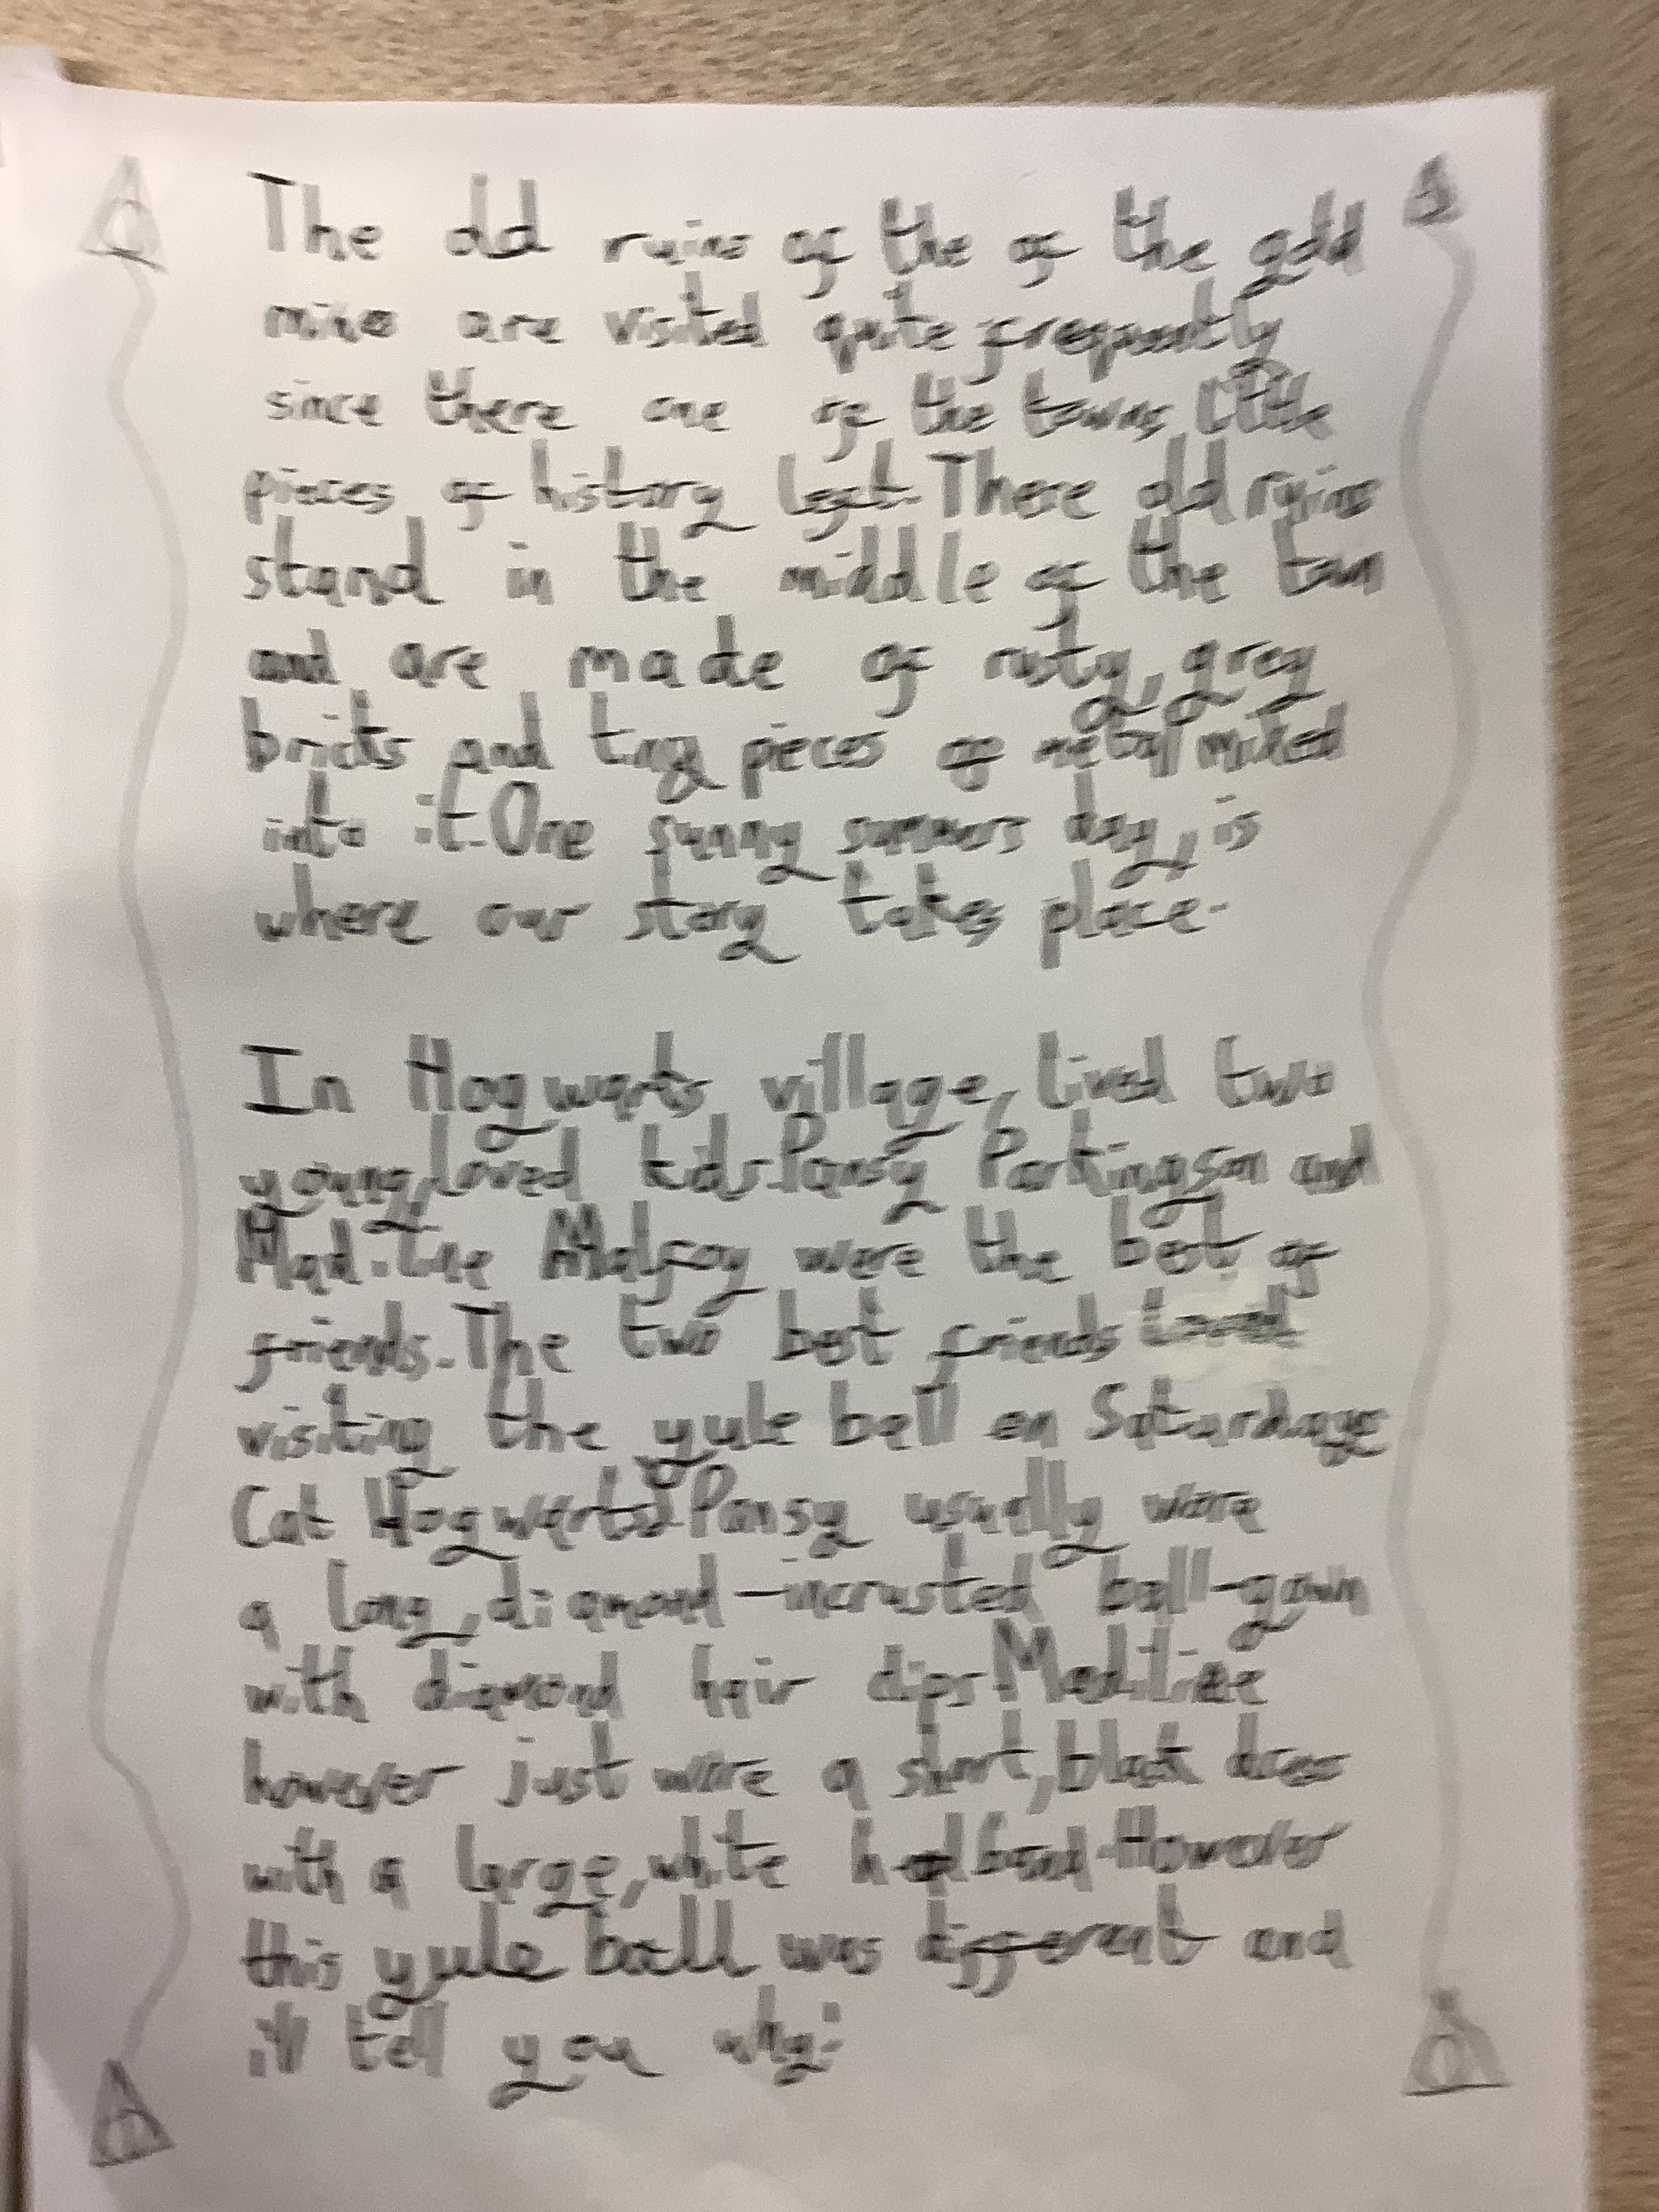 The old ruins of the of the gold
mine are visited quite frequently
since there one of the towns little
pieces of history left. These old ruins
stand in the middle of the town
and are made of rusty, grey
bricks and tiny pieces of metal mixed
into it. One sunny summers day, is
where our story takes place.
In Hogwarts village, lived two
young, loved kids. Pansy Parkingson and
Madiline Malfoy were the best of
friends. The two best friends loved
visiting the yule ball on Saturdays
(at Hogwarts). Pansy usually wore
a long, diamond-incrusted ball-gown
with diamond hair clips. Madiline
however just wore a short, black dress
with a large, white headband. However
this yule ball was different and
ill tell you why: